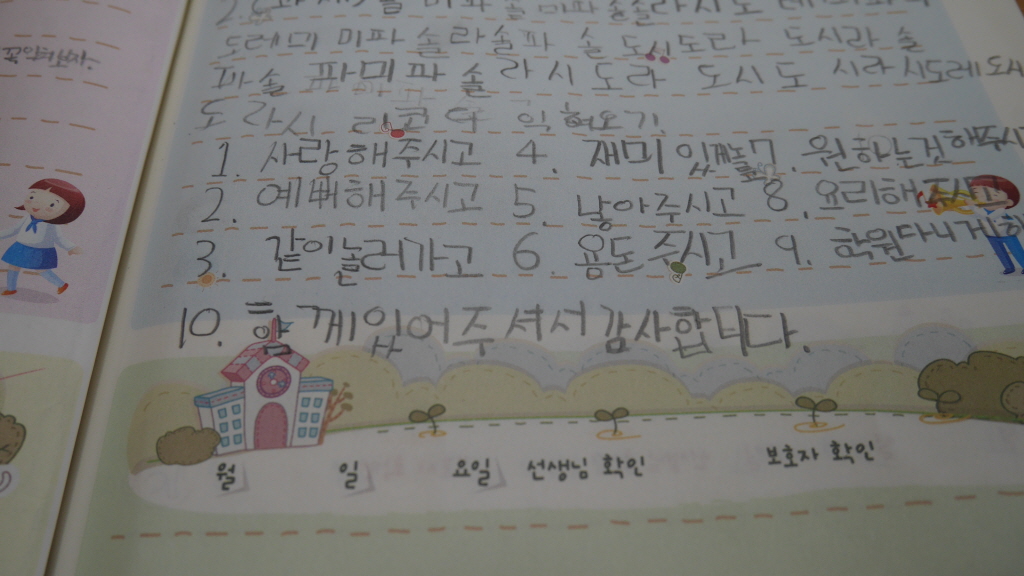 꼬약해보자.
도레미 미파 솔라솔파 솔 도시도라 도시라 솔
파솔 파미파 솔라시도라 도시도 시라시도레도시
도라시 리콘어 익혀오기.
1. 사랑해주시고 4. 재미있게놀 7. 원하는것해주시
2. 예뻐해주시고 5. 낳아주시고 8. 요리해주시고
3. 같이놀러가고 6. 용돈주시고 9. 학원다니게하
10. 함께있어주셔서감사합니다.
월 일 요일 선생님 확인 보호자 확인